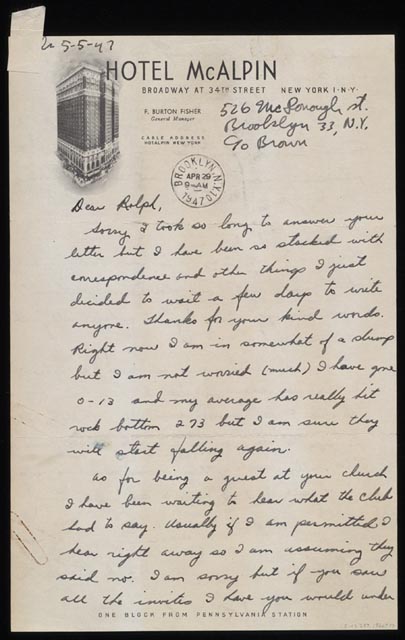 5-5-47
HOTEL McALPIN
BROADWAY AT 34TH STREET NEW YORK 1·N·Y·
F. BURTON FISHER
General Manager
CABLE ADDRESS
HOTALPIN NEW YORK
526 McDonough St.
Brooklyn 33, N.Y.
c/o Brown
BROOKLYN, N.Y.
APR 29
9-AM
1947
Dear Ralph,
Sorry I took so long to answer your
letter but I have been so stacked with
correspondence and other things I just
decided to wait a few days to write
anyone. Thanks for your kind words.
Right now I am in somewhat of a slump
but I am not worried (much) I have gone
0-13 and my average has really hit
rock bottom 273 but I am sure they
will start falling again.
As for being a guest at your church
I have been waiting to hear what the Club
had to say. Usually if I am permitted I
hear right away so I am assuming they
said no. I am sorry but if you saw
all the invites I have you would under
ONE BLOCK FROM PENNSYLVANIA STATION